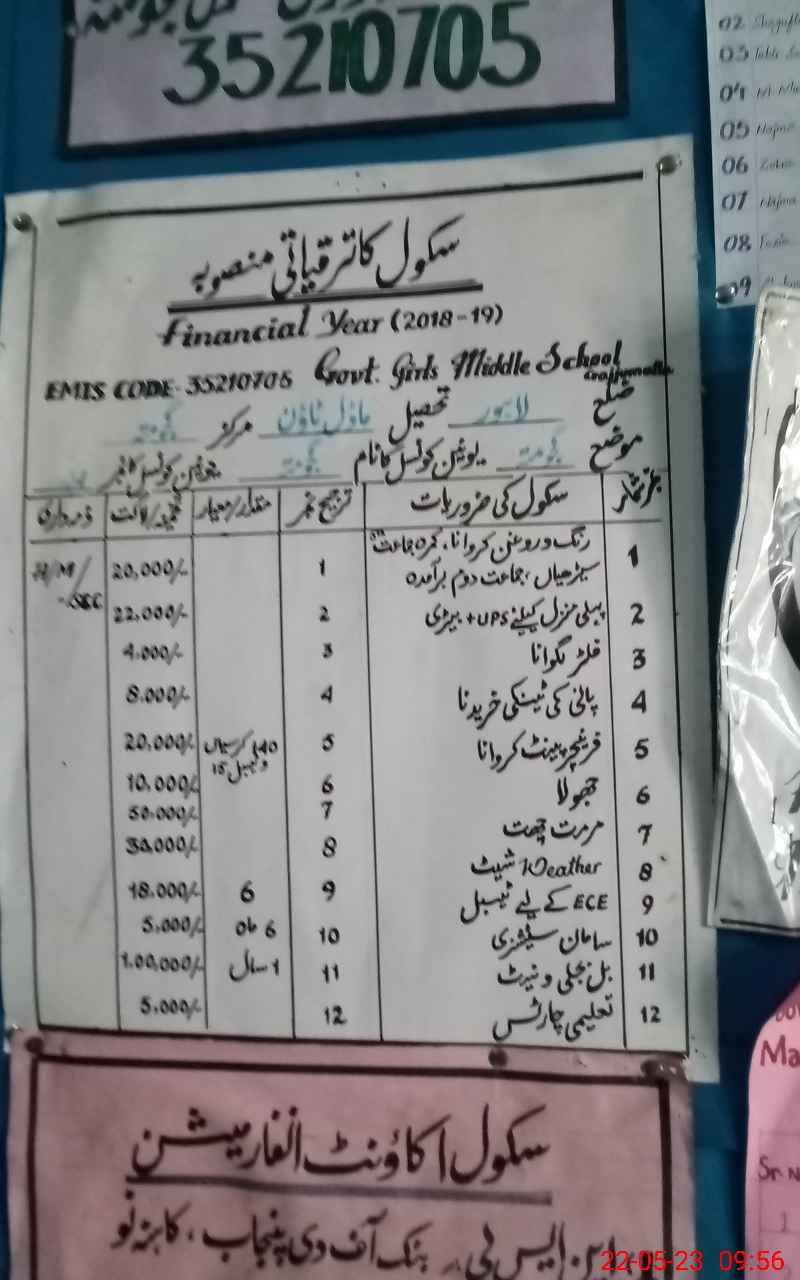 35210705
سکول کا ترقیاتی منصوبہ
Financial Year (2018-19)
EMIS CODE- 35210705 Govt. Girls Middle School
ضلع لاہور تحصیل ماڈل ٹاؤن مرکز
موضع یونین کونسل کا نام یونین کونسل نمبر
نمبر شمار سکول کی ضروریات ترجیح نمبر مقدار/معیار تخمینہ/لاگت ذمہ داری
1 رنگ و روغن کروانا، کمرہ جماعت سیڑھیاں، جماعت دوم برآمدہ 1 20,000/- H/M/-SEC
2 پہلی منزل کیلئے UPS+ بیٹری 2 22,000/-
3 فلٹر لگوانا 3 4,000/-
4 پانی کی ٹینکی خریدنا 4 8,000/-
5 فرنیچر پینٹ کروانا 5 140 کرسیاں و ٹیبل 15 20,000/-
6 جھولا 6 10,000/-
7 مرمت چھت 7 50,000/-
8 Weather شیٹ 8 30,000/-
9 ECE کے لیے ٹیبل 9 6 18,000/-
10 سامان سٹیشنری 10 6 ماہ 5,000/-
11 بل بجلی و نیٹ 11 1 سال 1,00,000/-
12 تعلیمی چارٹس 12 5,000/-
سکول اکاؤنٹ انفارمیشن
بنک آف دی پنجاب، کاہنہ نو
02
03
04
05 Najma
06
07 Najma
08
09
Ma
Sr. N
1
22-05-23 09:56